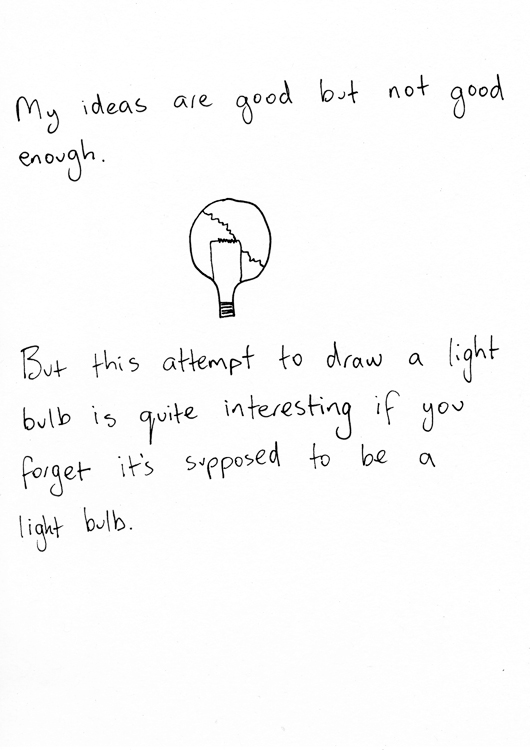 My ideas are good but not good
enough.
But this attempt to draw a light
bulb is quite interesting if you
forget it's supposed to be a
light bulb.